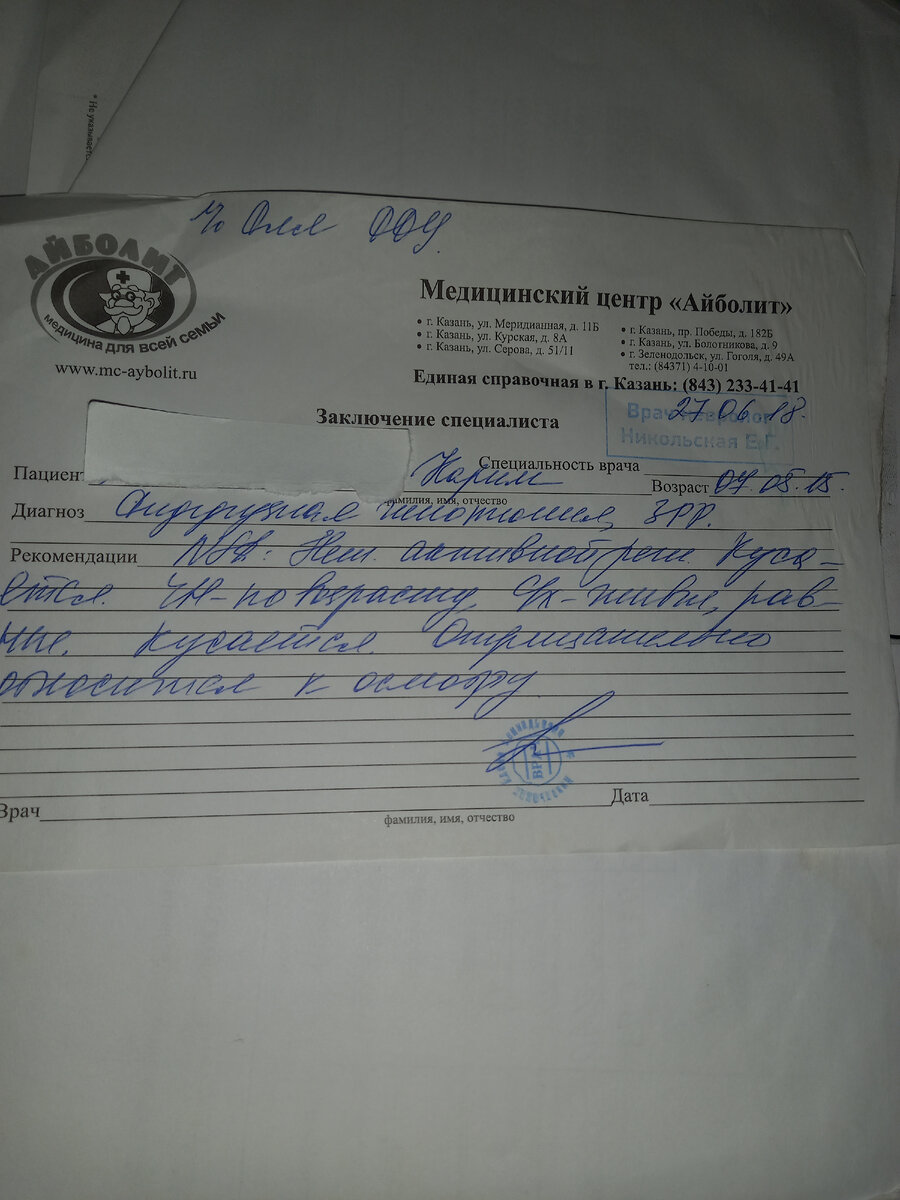 * Не указывает
Для ДДУ
АЙБОЛИТ
медицина для всей семьи
www.mc-aybolit.ru
Медицинский центр «Айболит»
• г. Казань, ул. Меридианная, д. 11Б
• г. Казань, ул. Курская, д. 8А
• г. Казань, ул. Серова, д. 51/11
• г. Казань, пр. Победы, д. 182Б
• г. Казань, ул. Болотникова, д. 9
• г. Зеленодольск, ул. Гоголя, д. 49А
тел.: (84371) 4-10-01
Единая справочная в г. Казань: (843) 233-41-41
27.06.18.
Врач невролог
Никольская Е.Г.
Заключение специалиста
Специальность врача
Пациент Карим Возраст 07.05.15.
фамилия, имя, отчество
Диагноз Диффузная гипотония, ЗРР.
Рекомендации Нет активной речи. Куса-
ется. ЧН-по возрасту, Сх-живые, рав-
ные. Кусается. Отрицательно
относится к осмотру
ВРАЧ
Врач Дата
фамилия, имя, отчество